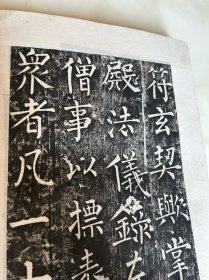 符玄契歟掌
殿法儀錄左
僧事以標表
衆者凡一十